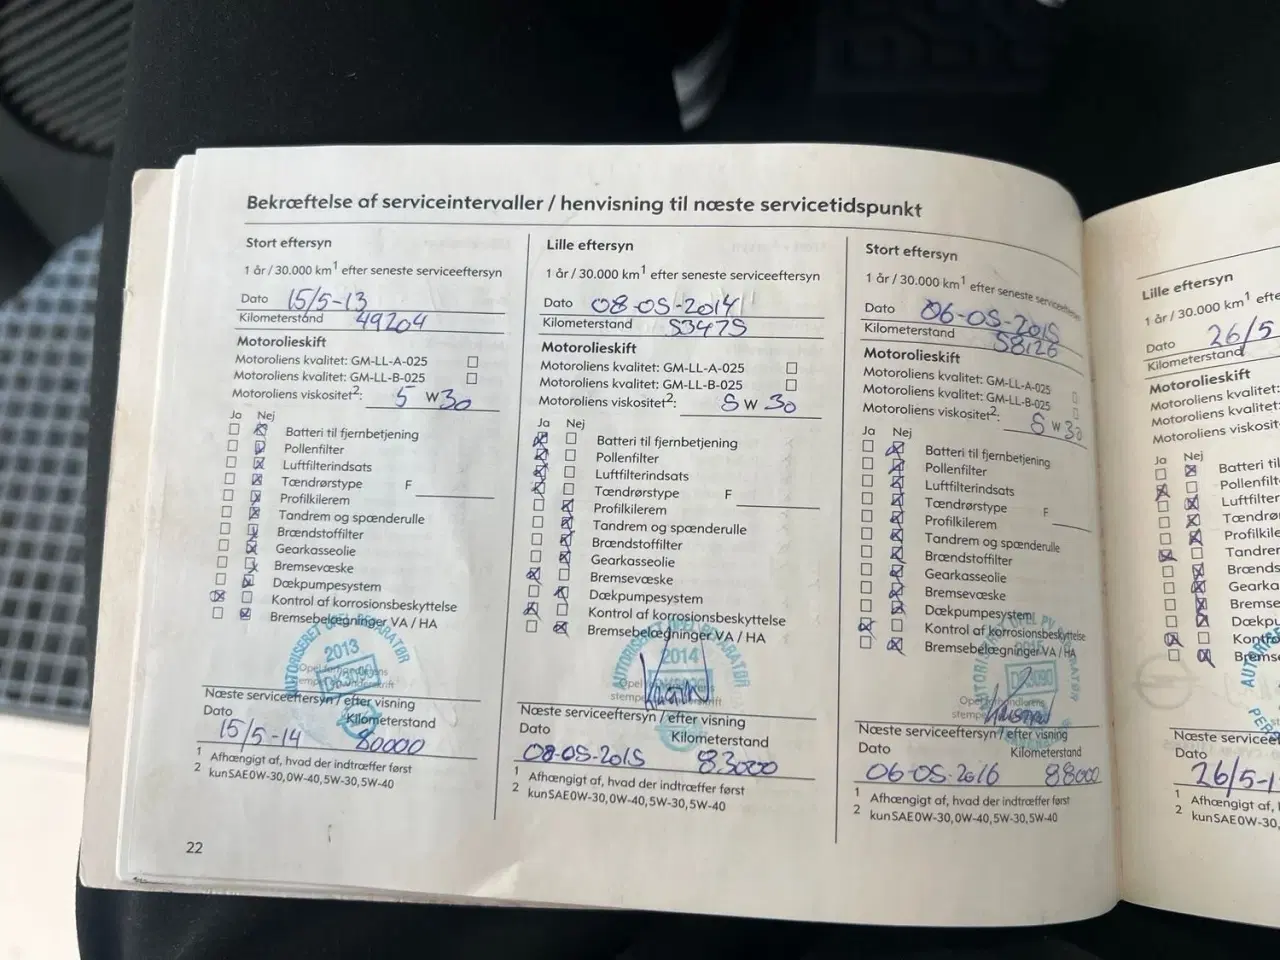 Bekræftelse af serviceintervaller / henvisning til næste servicetidspunkt
Stort eftersyn
1 år / 30.000 km1 efter seneste serviceeftersyn
Dato 15/5-13
Kilometerstand 49204
Motorolieskift
Motoroliens kvalitet: GM-LL-A-025
Motoroliens kvalitet: GM-LL-B-025
Motoroliens viskositet2: 5 W 30
Ja Nej
Batteri til fjernbetjening
Pollenfilter
Luftfilterindsats
Tændrørstype F
Profilkilerem
Tandrem og spænderulle
Brændstoffilter
Gearkasseolie
Bremsevæske
Dækpumpesystem
Kontrol af korrosionsbeskyttelse
Bremsebelægninger VA / HA
AUTORISERET OPEL REPARATØR
2013
Næste serviceeftersyn / efter visning
Dato Kilometerstand
15/5-14 80000
1 Afhængigt af, hvad der indtræffer først
2 kun SAE 0W-30, 0W-40, 5W-30, 5W-40
22
Lille eftersyn
1 år / 30.000 km1 efter seneste serviceeftersyn
Dato 08-05-2014
Kilometerstand 53475
Motorolieskift
Motoroliens kvalitet: GM-LL-A-025
Motoroliens kvalitet: GM-LL-B-025
Motoroliens viskositet2: 5 W 30
Ja Nej
Batteri til fjernbetjening
Pollenfilter
Luftfilterindsats
Tændrørstype F
Profilkilerem
Tandrem og spænderulle
Brændstoffilter
Gearkasseolie
Bremsevæske
Dækpumpesystem
Kontrol af korrosionsbeskyttelse
Bremsebelægninger VA / HA
AUTORISERET OPEL REPARATØR
2014
Næste serviceeftersyn / efter visning
Dato Kilometerstand
08-05-2015 83000
1 Afhængigt af, hvad der indtræffer først
2 kun SAE 0W-30, 0W-40, 5W-30, 5W-40
Stort eftersyn
1 år / 30.000 km1 efter seneste serviceeftersyn
Dato 06-05-2015
Kilometerstand 58126
Motorolieskift
Motoroliens kvalitet: GM-LL-A-025
Motoroliens kvalitet: GM-LL-B-025
Motoroliens viskositet2: 5 W 30
Ja Nej
Batteri til fjernbetjening
Pollenfilter
Luftfilterindsats
Tændrørstype F
Profilkilerem
Tandrem og spænderulle
Brændstoffilter
Gearkasseolie
Bremsevæske
Dækpumpesystem
Kontrol af korrosionsbeskyttelse
Bremsebelægninger VA / HA
Næste serviceeftersyn / efter visning
Dato Kilometerstand
06-05-2016 88000
1 Afhængigt af, hvad der indtræffer først
2 kun SAE 0W-30, 0W-40, 5W-30, 5W-40
Lille eftersyn
1 år / 30.000 km1 efte
Dato 26/5
Kilometerstand
Motorolieskift
Motoroliens kvalitet:
Motoroliens kvalitet:
Motoroliens viskosi
Ja Nej
Batteri til
Pollenfilt
Luftfilter
Tændrø
Profilkile
Tandre
Brænds
Gearka
Bremse
Dækpu
Kontro
Bremse
Næste servicee
Dato
26/5-1
1 Afhængigt af,
2 kun SAE 0W-30,